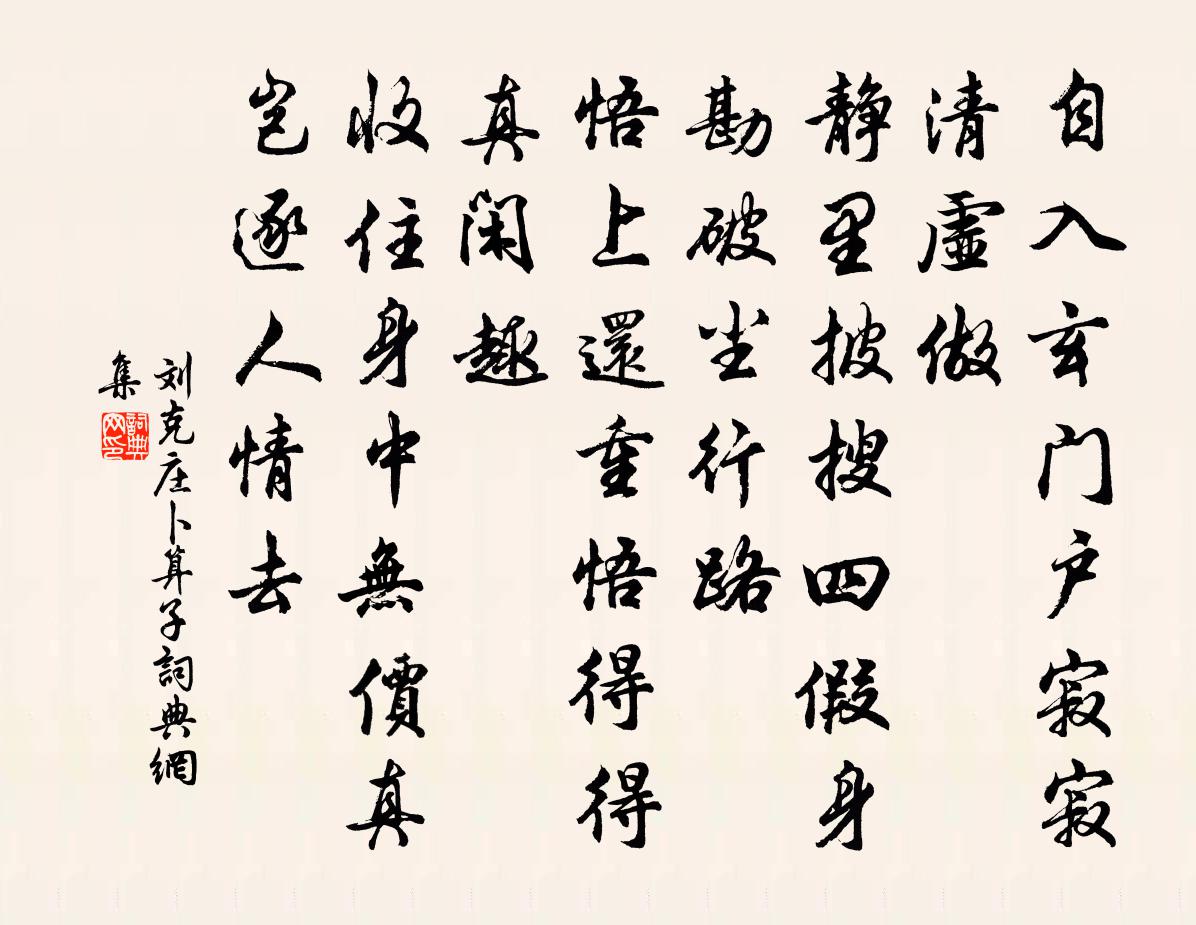 自入玄门户寂寂
清虛做
静里披搜四假身
勘破尘行路
悟上還重悟得得
真闲趣
收住身中無價真
岂逐人情去
刘克庄卜算子詞典網
集
詞典网印